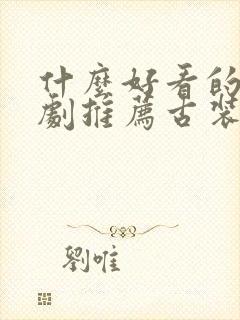 什麼好看的
劇推薦古裝
劉唯